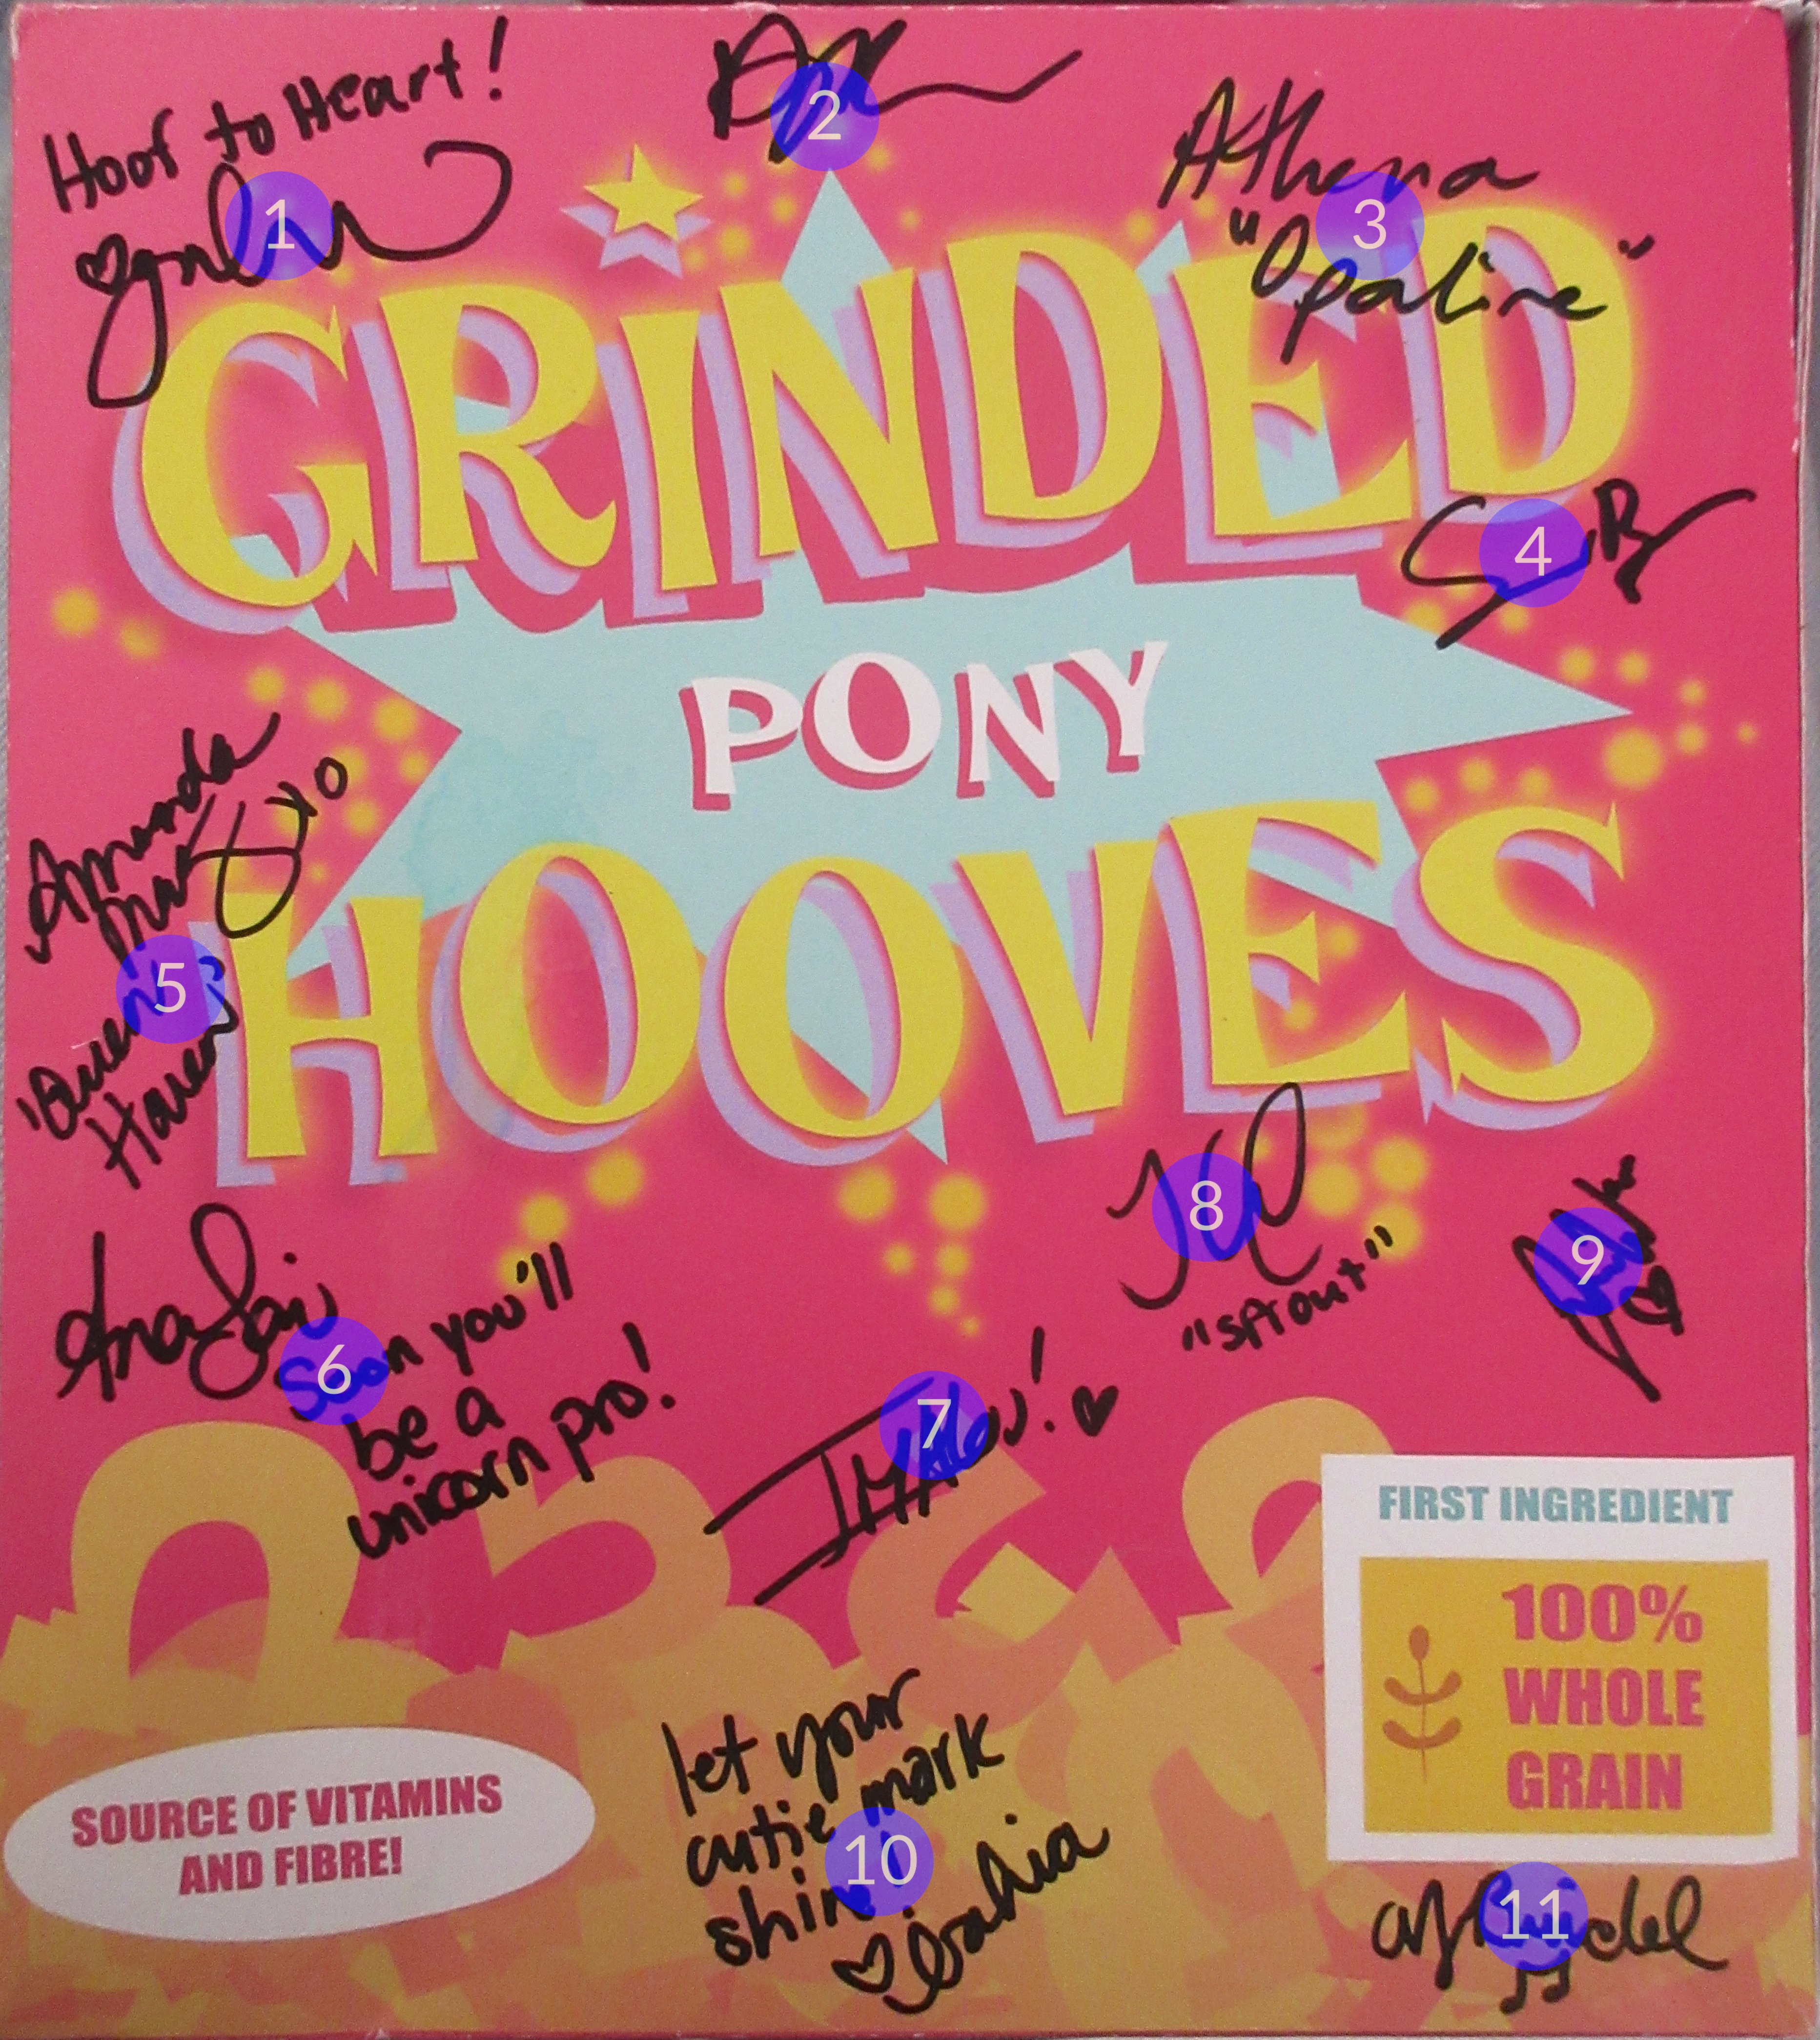 Hoof to Heart!
1
2
Athena
3
"Opaline"
GRINDED
4
PONY
Amanda
xo
HOOVES
5
"Queen
Haven"
8
"Sprout"
9
6
Soon you'll
be a
unicorn pro!
7
FIRST INGREDIENT
100%
WHOLE
GRAIN
let your
cutie mark
shine!
10
SOURCE OF VITAMINS
AND FIBRE!
Bahia
AJ Bridel
11